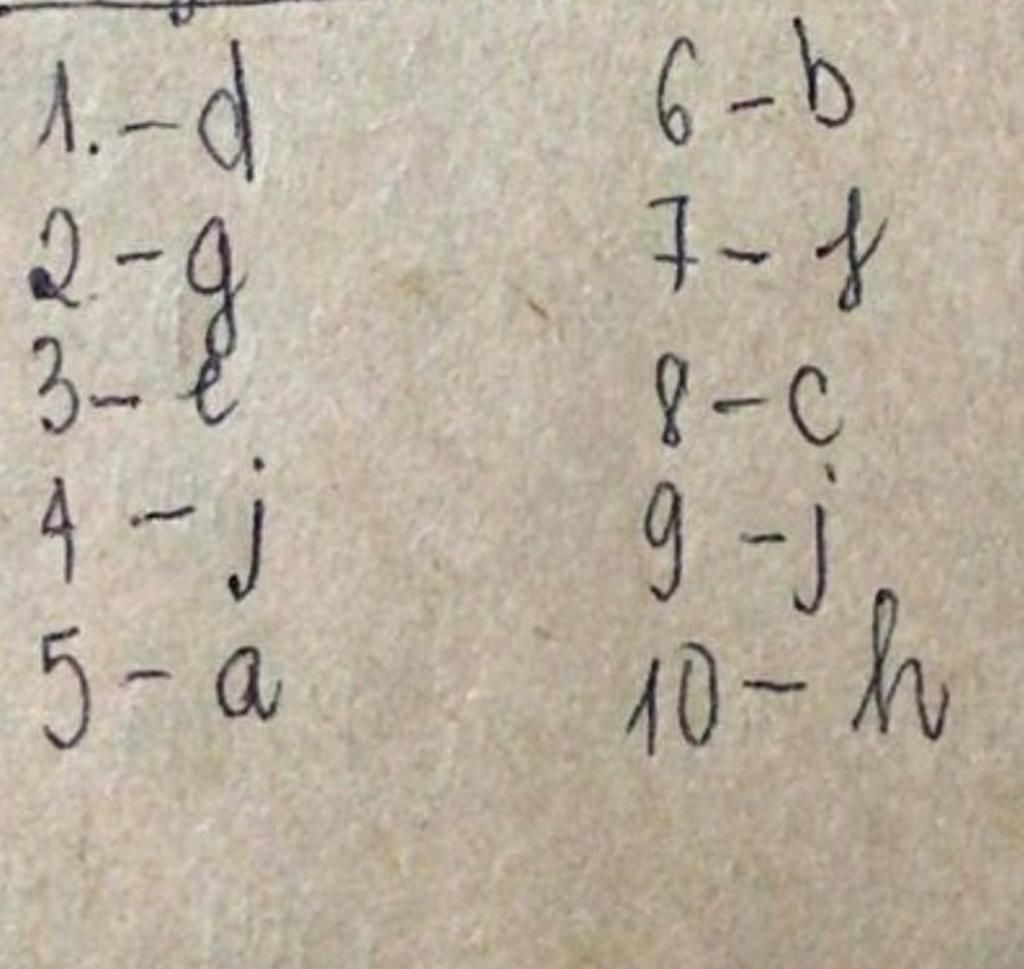 1. - d
2 - g
3 - e
4 - j
5 - a
6 - b
7 - f
8 - c
9 - j
10 - h